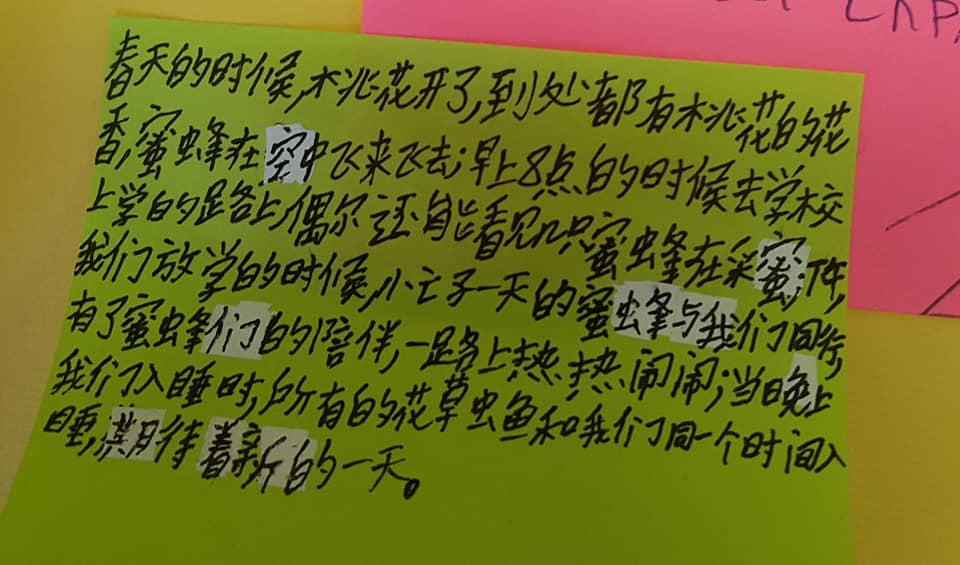 春天的时候,桃花开了,到处都有桃花的花
香,蜜蜂在空中飞来飞去;早上8点的时候去学校
上学的路上,偶尔还能看见几只蜜蜂在采蜜;下午,
我们放学的时候,忙了一天的蜜蜂与我们同行,
有了蜜蜂们的陪伴,一路上热热闹闹;当日晚上
我们入睡时,所有的花草虫鱼和我们同一个时间入
睡,期待着新的一天。